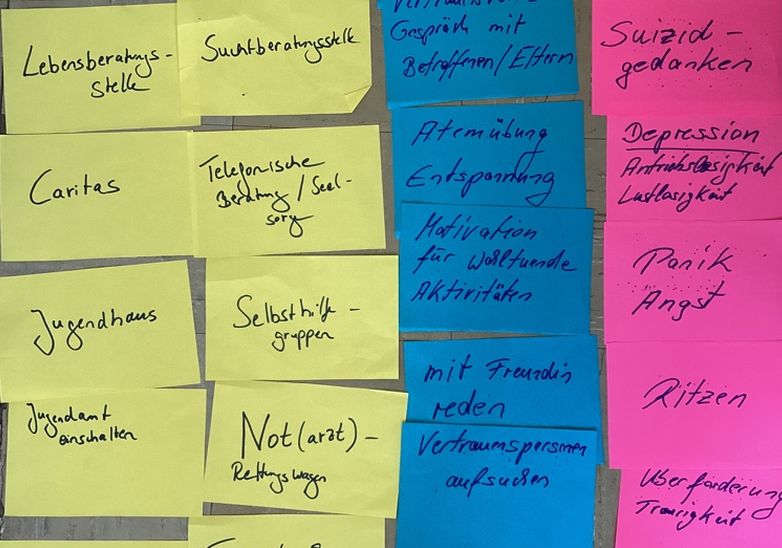 Lebensberatungs-
stelle
Caritas
Jugendhaus
Jugendamt
einschalten
Suchtberatungsstelle
Telefonische
Beratung / Seel-
sorge
Selbsthilfe-
gruppen
Not(arzt) -
Rettungswagen
Gespräch mit
Betroffenen / Eltern
Atemübung
Entspannung
Motivation
für wohltuende
Aktivitäten
mit Freundin
reden
Vertrauenspersonen
aufsuchen
Suizid -
gedanken
Depression
Antriebslosigkeit
Lustlosigkeit
Panik
Angst
Ritzen
Überforderung
Traurigkeit